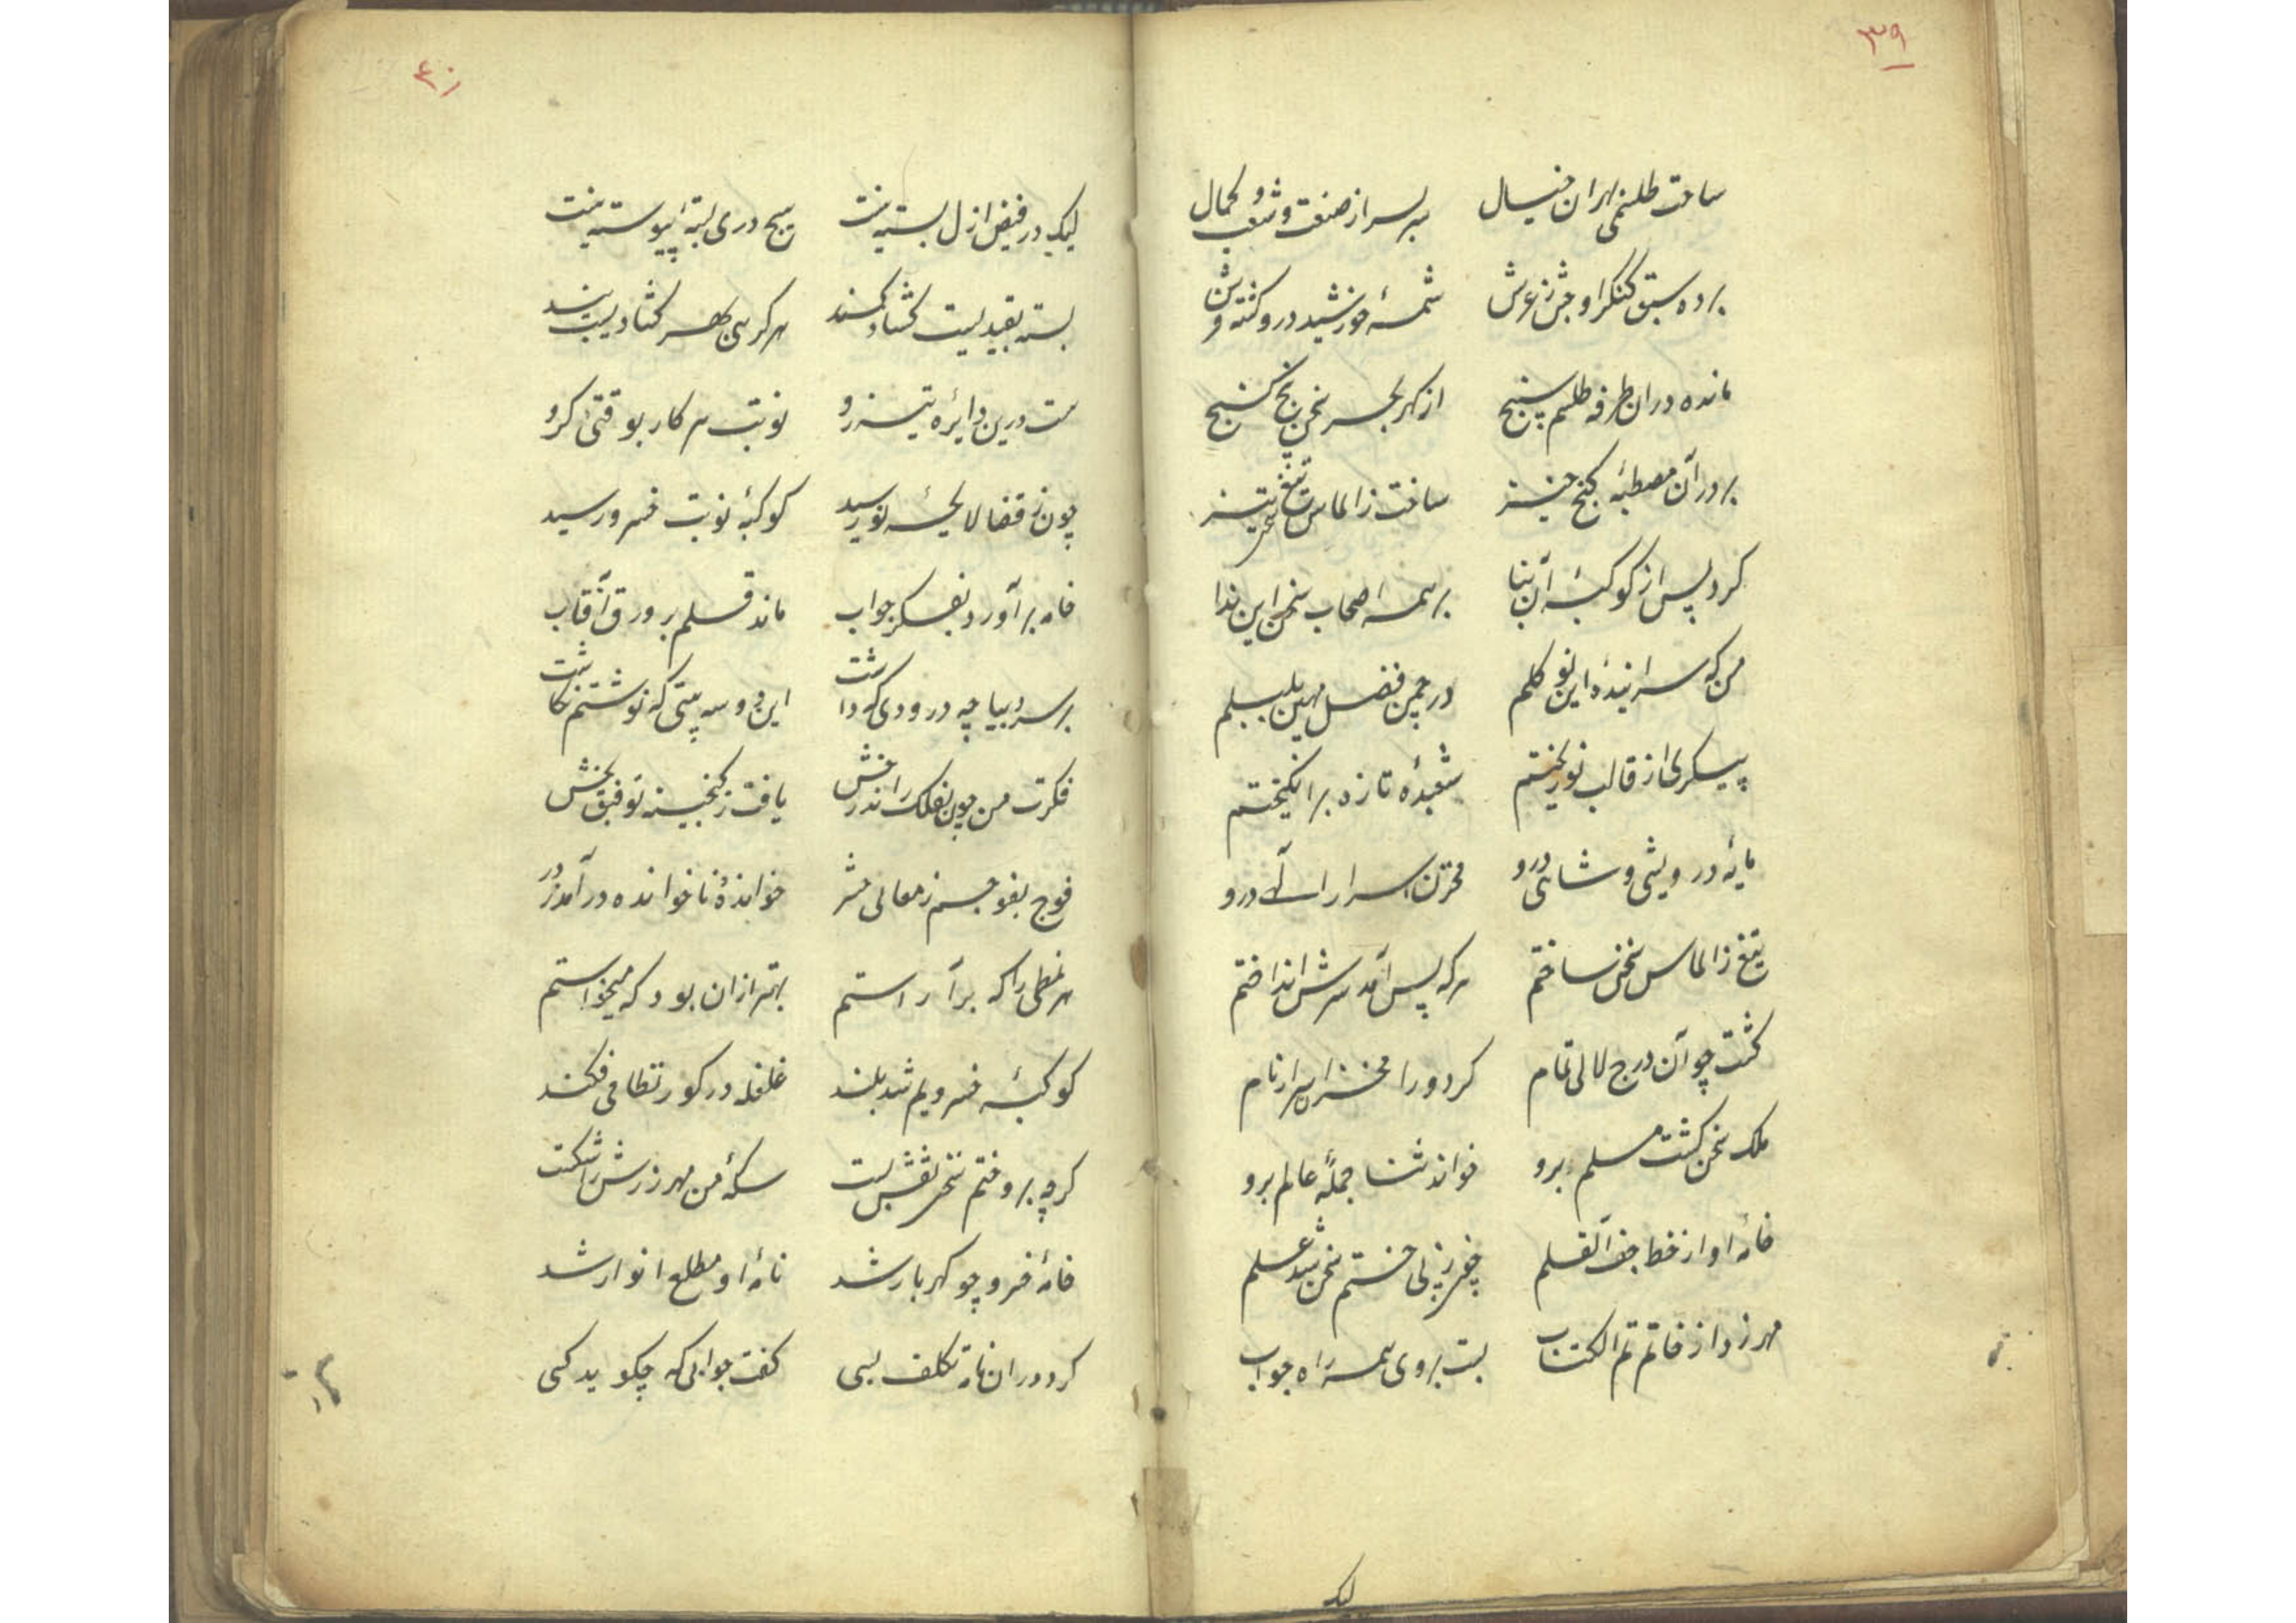 ۳۹
ساخت طلسمی بهزاران خیال سربسر از صنعت و شعب کمال
برده سبق کنگر اوجش ز عرش شمسهٔ خورشید درو کشته فرش
مانده دران طرفه طلسم پنج از کهر بحر سخن پنج کنج
بر در آن مصطبهٔ کنج خیز ساخت ز الماس سخن تیغ تیز
کرد پس از کوکبهٔ آن بنا بر همه اصحاب سخن این ندا
من که سرایندهٔ این نو کلم در چمن فضل مهین بلبلم
پیکری از قالب نو ریختم شعبدهٔ تازه برانکیختم
مایهٔ درویشی و شاهی درو مخزن اسرار الهی درو
تیغ ز الماس سخن ساختم هر که پس آمد سرش انداختم
کشت چو آن درج لالی تمام کرد ورا مخزن اسرار نام
ملک سخن کشت مسلم برو خواند ثنا جملهٔ عالم برو
خامهٔ او از خط جف القلم چون ز پی ختم سخن شد علم
مهر زد از خاتم تم الکتاب بست بروی همه راه جواب
لیک
۴۰
لیک در فیض ازل بسته نیست هیچ دری بسته پیوسته نیست
بسته بقید یست کشاد کمند هر کرهی بهر کشادیست بند
هست درین دایرهٔ تیزرو نوبت هر کار بوقتی کرو
چون ز قضا لایحهٔ نو رسید کوکبهٔ نوبت خسرو رسید
خامه برآورد بفکر جواب ماند قلم بر ورق آفتاب
بر سر دیباچه درودی که داشت این دو سه بیتی که نوشتم نکاشت
فکرت من چون بفلک راند رخش یافت ز کنجینه توفیق بخش
فوج بفوجم ز معالی حشر خواندهٔ ناخوانده درآمد ز در
هر نمطی را که برآراستم بهتر ازان بود که میخواستم
کوکبهٔ خسرویم شد بلند غلغله در کور نظامی فکند
کرچه برو ختم سخن نقش بست سکهٔ من مهر زرش را شکست
خامهٔ خسرو چو کهربار شد نامهٔ او مطلع انوار شد
کرد دران نامه تکلف بسی کفت جوابی که چکوید کسی